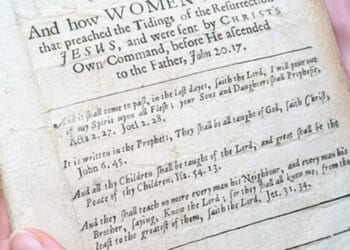 And how WOMEN
that preached the Tidings of the Resurrection
JESUS, and were sent by CHRIST'S
Own Command, before He ascended
to the Father, John 20. 17.
And it shall come to pass, in the last dayes, saith the Lord, I will pour out
of my Spirit upon all Flesh; your Sons and Daughters shall Prophesie,
Acts 2. 27. Joel 2. 28.
It is written in the Prophets, They shall be all taught of God, saith Christ,
John 6. 45.
And all thy Children shall be taught of the Lord, and great shall be the
Peace of thy Children. Isa. 54. 13.
And they shall teach no more every man his Neighbour, and every man his
Brother, saying, Know the Lord; for they shall all know me, from the
least to the greatest of them, saith the Lord, Jer. 31. 34.